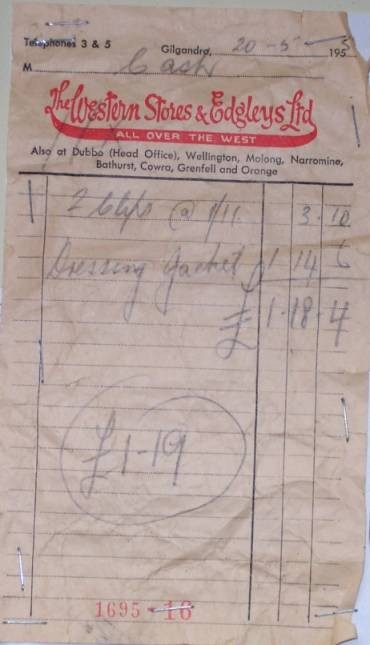 Telephones 3 & 5
Gilgandra, 20-5-5 195
M Cash
The Western Stores & Edgleys Ltd
ALL OVER THE WEST
Also at Dubbo (Head Office), Wellington, Molong, Narromine,
Bathurst, Cowra, Grenfell and Orange
2 @ 1/11. 3. 10
Dressing Jacket 1 14 6
£ 1.18.4
£1-19
1695 - 16